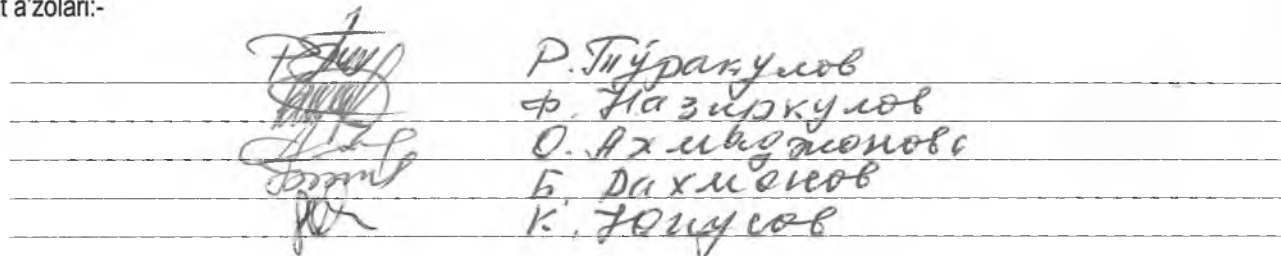 t a'zolari:-
Р. Тўракулов
Ф. Назиркулов
О. Ахмаджонова
Б. Рахмонов
К. Юнусов